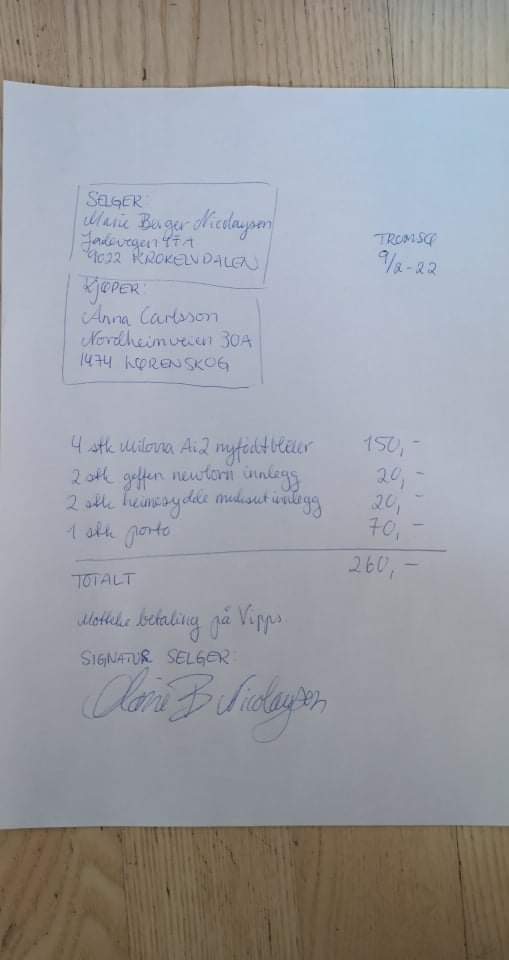 SELGER:
Marie Berger Nicolaysen
Jadevegen 47A
9022 KROKELVDALEN
TROMSØ
9/2-22
KJØPER:
Anna Carlsson
Nordheimveien 30A
1474 LØRENSKOG
4 stk Milovia Ai2 nyfødtbleier 150,-
2 stk geffen newborn innlegg 20,-
2 stk heimesydde innlegg 20,-
1 stk porto 70,-
TOTALT 260,-
betaling på Vipps.
SIGNATUR SELGER:
Marie B Nicolaysen